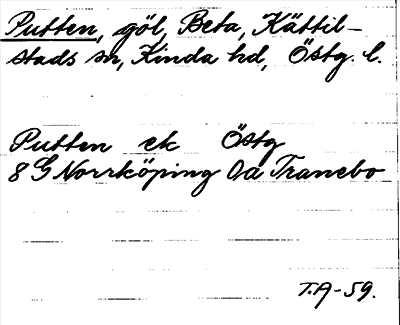 Putten, göl, Beta, Kättil-
stads sn, Kinda hd, Östg. l.
Putten ek Östg
8 G Norrköping 0a Tranebo
T.A-59.